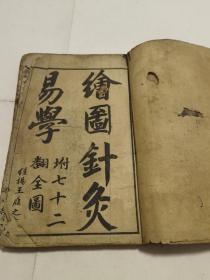 繪圖針灸
易學
坿七十二
翻全圖